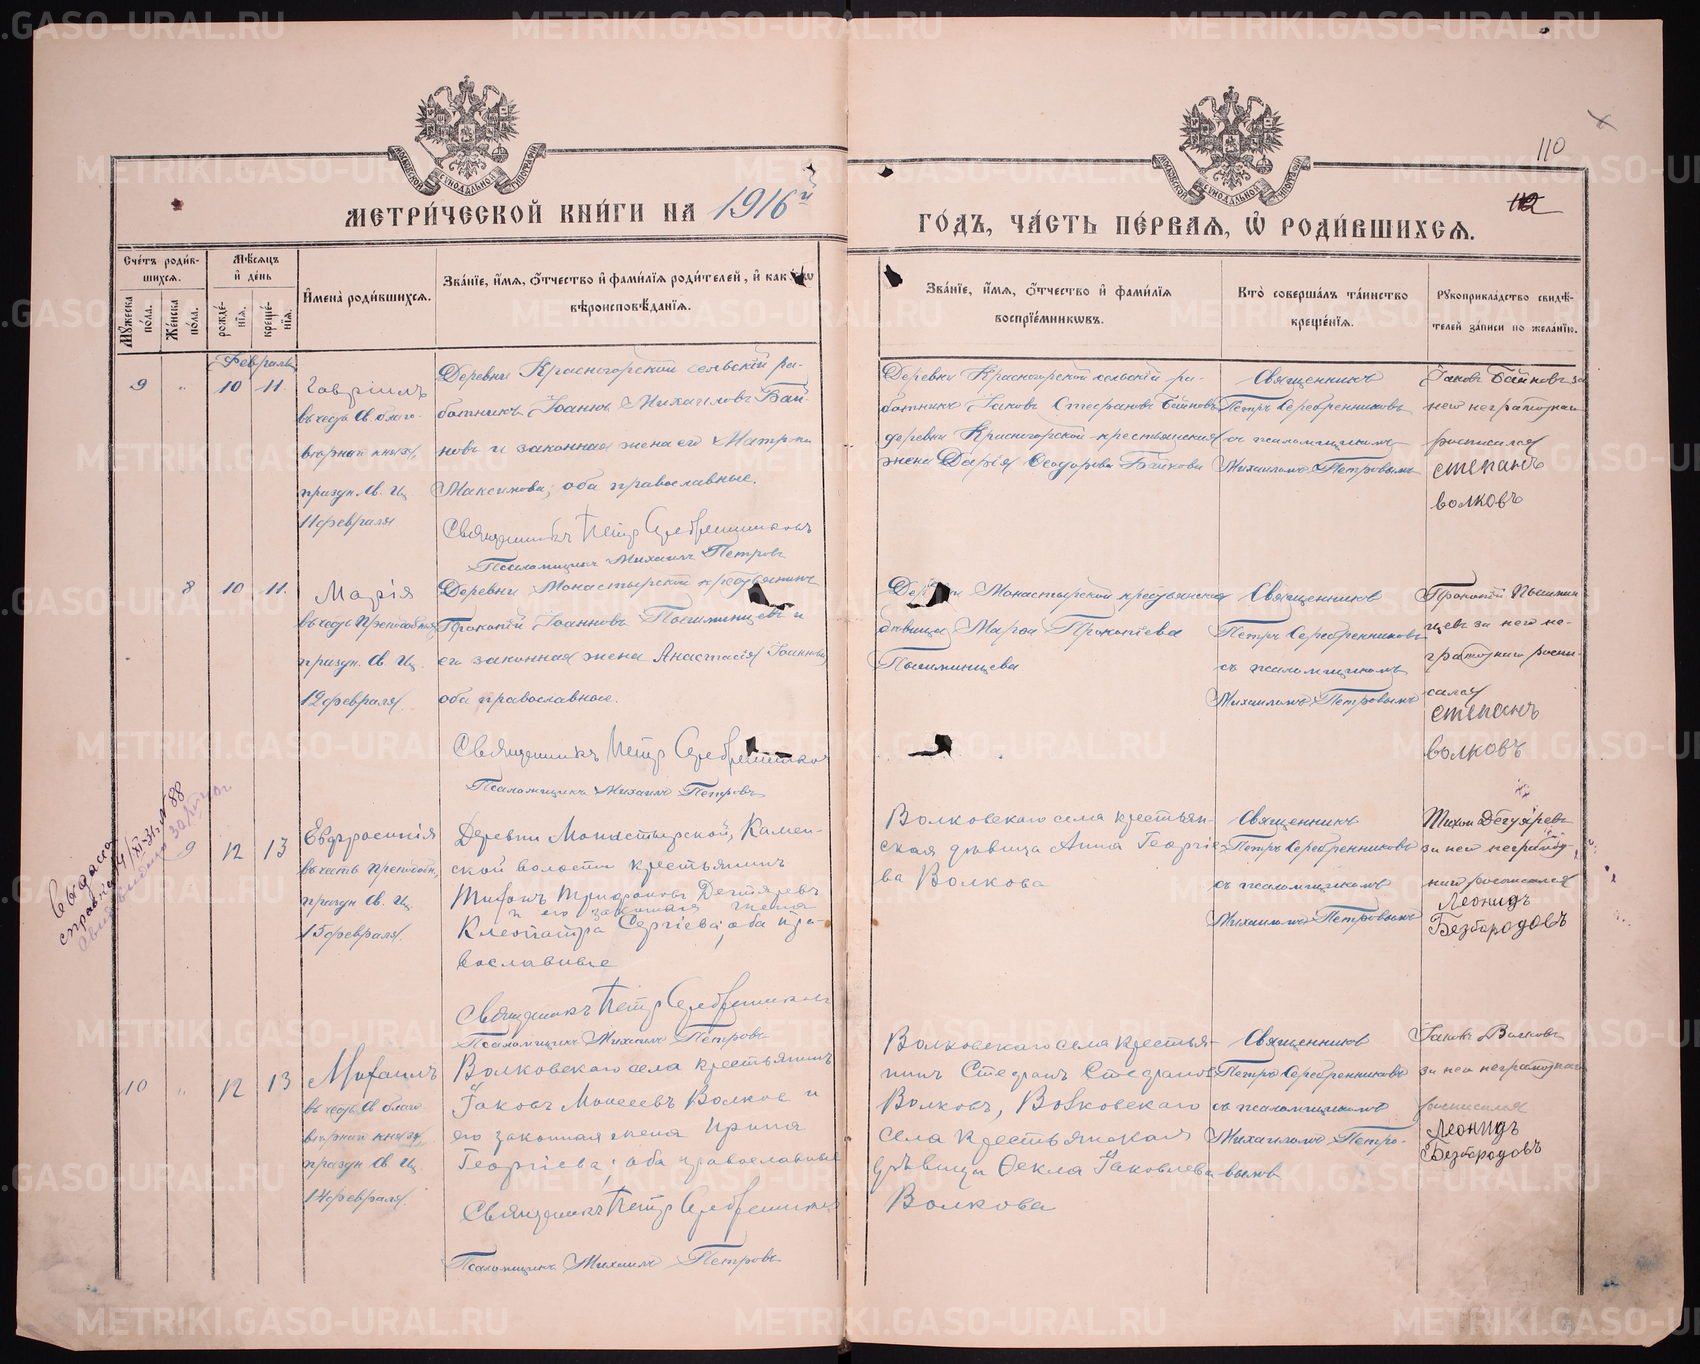 110
112
МЕТРИ́ЧЕСКОЙ КНИ́ГИ НА 1916й
ГО́ДЪ, ЧА́СТЬ ПЕ́РВАЯ, Ѡ҆ РОДИ́ВШИХСЯ.
Сче́тъ роди́в-
шихся.
Мꙋ́жеска
по́ла.
Же́нска
по́ла.
Мѣ́сяцъ
и҆ де́нь
рожде́-
нїя.
креще́-
нїя.
И҆мена̀ роди́вшихся.
Зва́нїе, и҆́мя, ѻ҆́тчество и҆ фами́лїя роди́телей, и҆ как
вѣроисповѣ́данїя.
Зва́нїе, и҆́мя, ѻ҆́тчество и҆ фами́лїя
воспрїе́мникѡвъ.
Кто̀ соверша́лъ та́инство
креще́нїя.
Рꙋкоприкла́дство свидѣ́-
телей за́писи по жела́нїю.
Февраль
9 " 10 11
Гавріилъ
въ честь св. благо-
вѣрнаго князя,
праздн. св. Ц.
11 февраля
Деревни Красногорской сельскій ра-
ботникъ Іоаннъ Михаиловъ Бай-
новъ и законная жена его Матрона
Максимова; оба православные.
Священникъ Петръ Серебренниковъ
Псаломщикъ Михаилъ Петровъ
Деревни Красногорской сельскій ра-
ботникъ Іаковъ Стефановъ Байновъ
деревни Красногорской крестьянская
жена Дарія Ѳеодорова Байнова
Священникъ
Петръ Серебренниковъ
съ псаломщикомъ
Михаиломъ Петровымъ
Іаковъ Байновъ за
него неграмотнаго
росписался
степанъ
волковъ
8 10 11
Марія
въ честь преподобной
праздн. св. Ц.
12 февраля
Деревни Монастырской крестьянинъ
Прокопій Іоанновъ Пошминцевъ и
его законная жена Анастасія Іоаннова,
оба православные.
Священникъ Петръ Серебренниковъ
Псаломщикъ Михаилъ Петровъ
Деревни Монастырской крестьянская
дѣвица Марѳа Прокопіева
Пошминцева
Священникъ
Петръ Серебренниковъ
съ псаломщикомъ
Михаиломъ Петровымъ
Прокопій Пошмин
цевъ за него не-
грамотнаго роспи-
сался
степанъ
волковъ
Выдана
справка 4/XI-31 г. № 88
9 12 13
Евфросинія
въ честь преподобн.
праздн св. Ц.
15 февраля.
Деревни Монастырской, Камен-
ской волости крестьянинъ
Тихонъ Трифоновъ Дегтяревъ
и его законная жена
Клеопатра Сергіева; оба пра-
вославные
Священникъ Петръ Серебренниковъ
Псаломщикъ Михаилъ Петровъ
Волковскаго села крестьян-
ская дѣвица Анна Георгіе-
ва Волкова
Священникъ
Петръ Серебренниковъ
съ псаломщикомъ
Михаиломъ Петровымъ
Тихон Дегтярев
за него неграмот-
наго росписался
Леонидъ
Безбородовъ
10 " 12 13
Михаилъ
въ честь св благо
вѣрнаго князя,
праздн св. Ц.
14 февраля.
Волковскаго села крестьянинъ
Іаковъ Моисеевъ Волковъ и
его законная жена Ирина
Георгіева; оба православные
Священникъ Петръ Серебренниковъ
Псаломщикъ Михаилъ Петровъ
Волковскаго села крестья-
нинъ Стефанъ Стефановъ
Волковъ, Волковскаго
села крестьянская
дѣвица Ѳекла Іаковлева
Волкова
Священникъ
Петръ Серебренниковъ
съ псаломщикомъ
Михаиломъ Петро-
вымъ
Іаковъ Волковъ
за него неграмотнаго
росписался
Леонидъ
Безбородовъ
METRIKI.GASO-URAL.RU